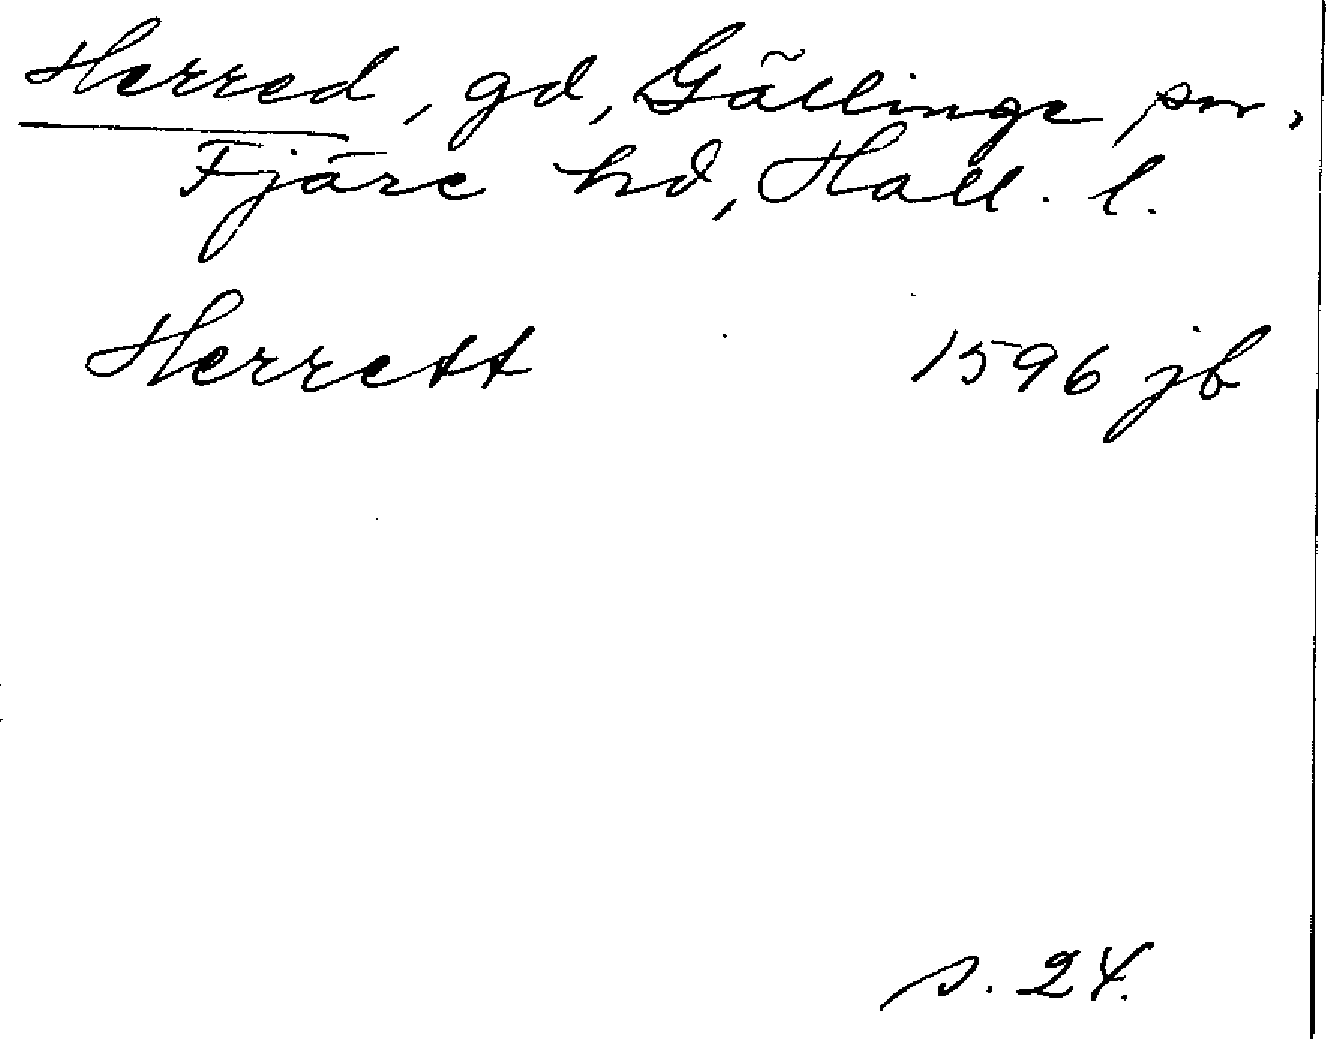 Herred, gd, Gällinge sn,
Fjäre hd, Hall. l.
Herrett 1596 jb
s. 24.